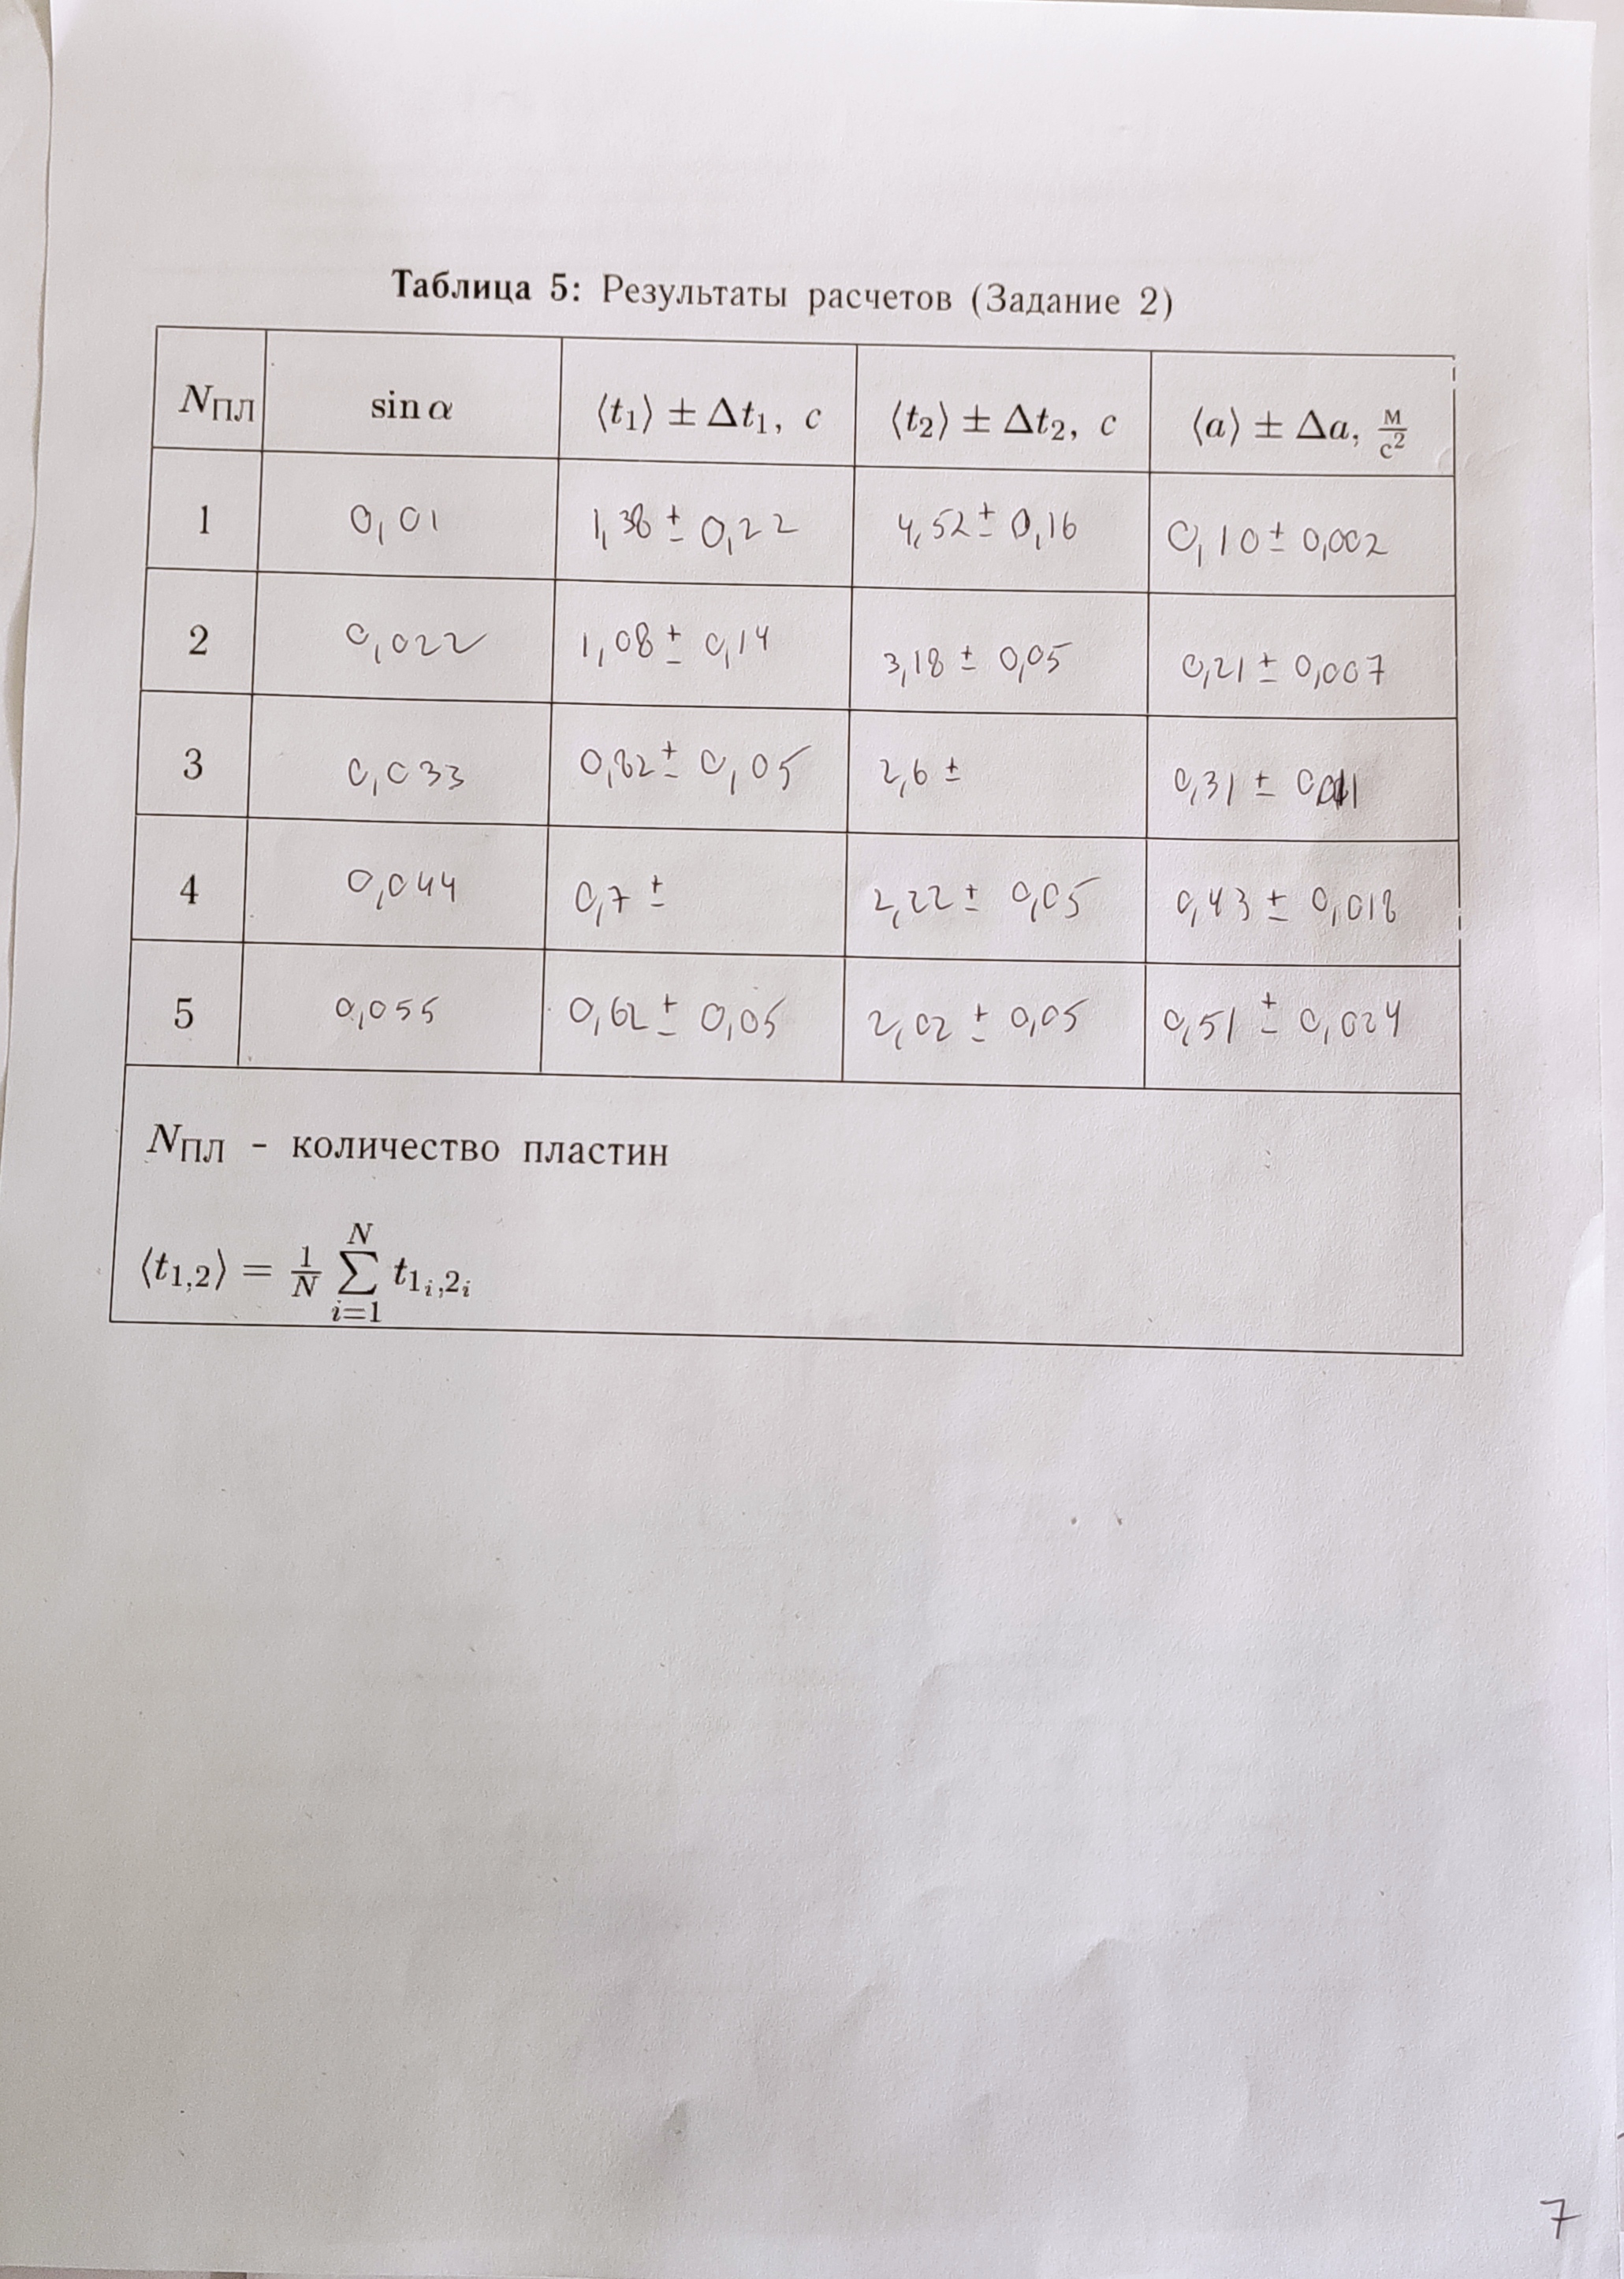 Таблица 5: Результаты расчетов (Задание 2)
Nпл sin α ⟨t₁⟩ ± Δt₁, с ⟨t₂⟩ ± Δt₂, с ⟨a⟩ ± Δa, м/с²
1 0,01 1,38 ± 0,22 4,52 ± 0,16 0,10 ± 0,002
2 0,022 1,08 ± 0,14 3,18 ± 0,05 0,21 ± 0,007
3 0,033 0,82 ± 0,05 2,6 ± 0,31 ± 0,011
4 0,044 0,7 ± 2,22 ± 0,05 0,43 ± 0,018
5 0,055 0,62 ± 0,05 2,02 ± 0,05 0,51 ± 0,024
Nпл - количество пластин
⟨t₁,₂⟩ = 1/N ∑_{i=1}^{N} t_{1_i,2_i}
7